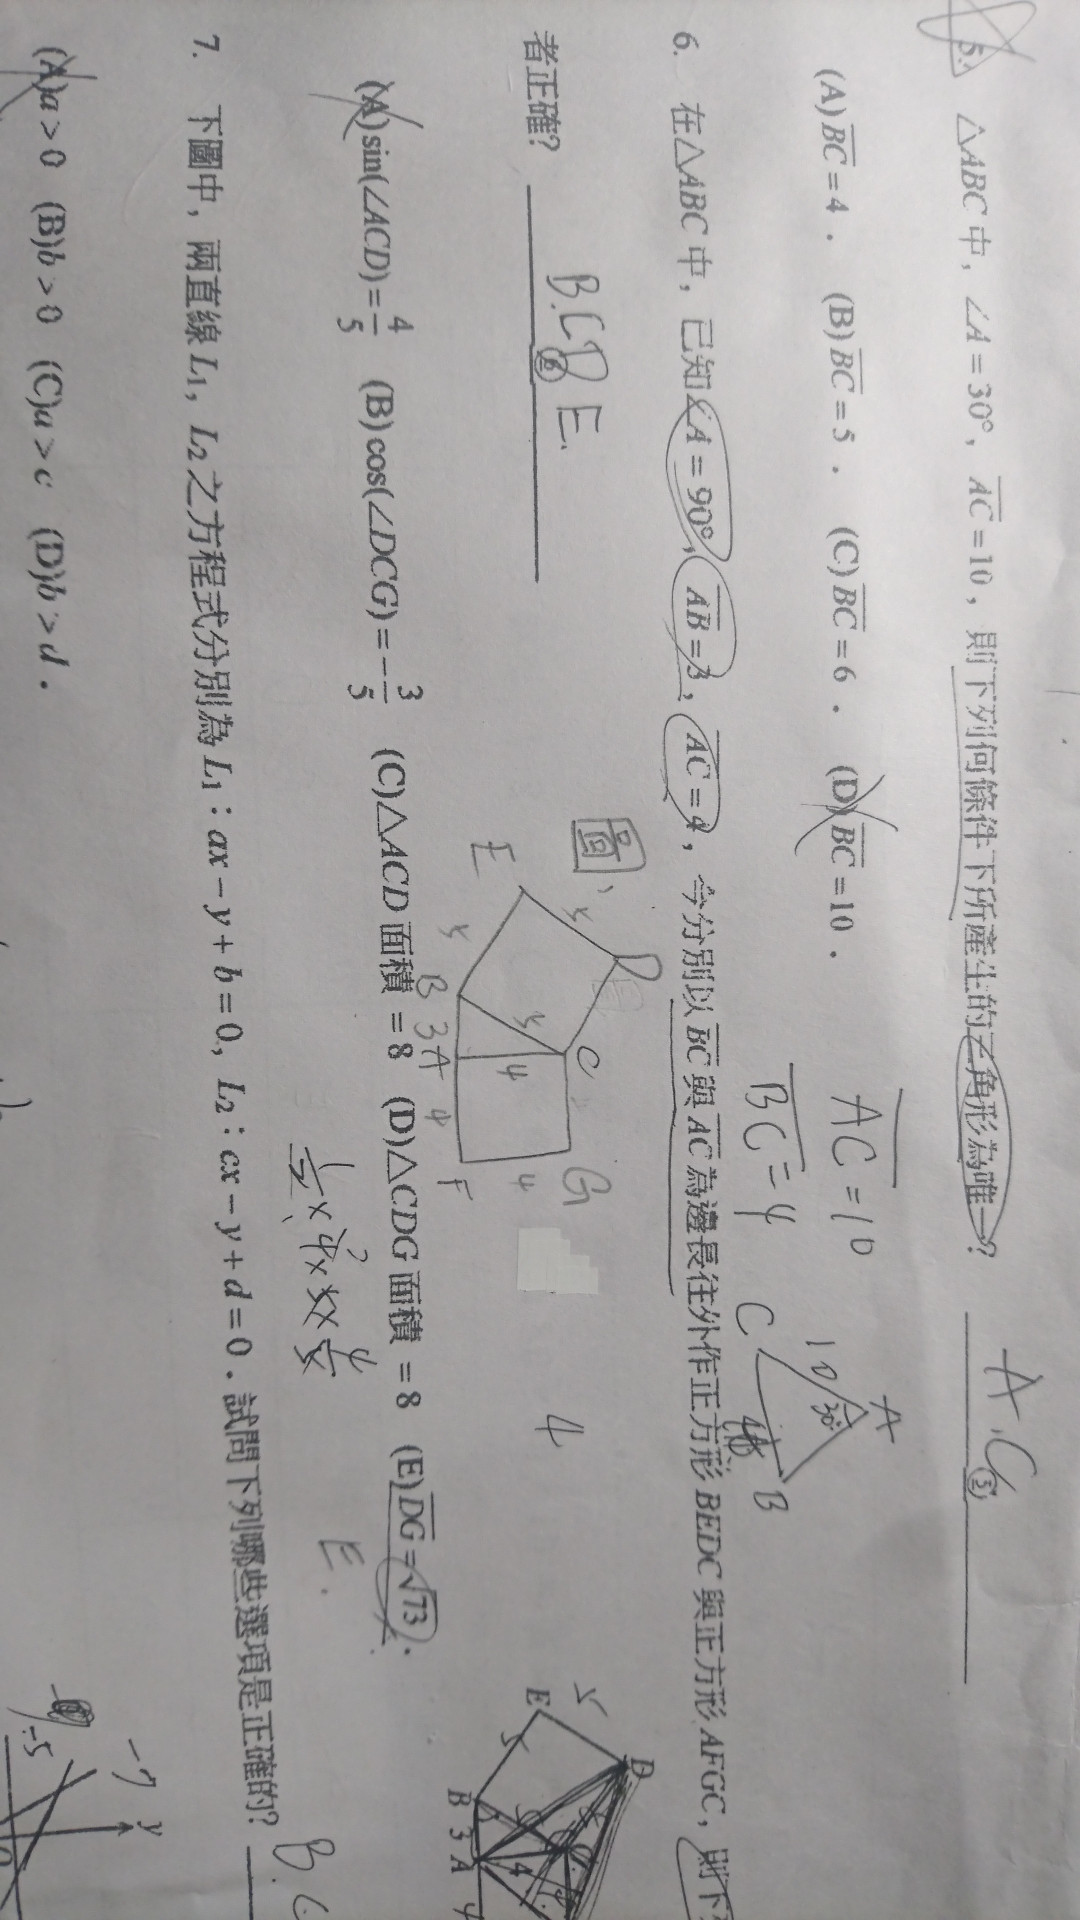 5. △ABC 中，∠A=30°，AC=10，則下列何條件下所產生的三角形為唯一？ A,C
(A)BC=4． (B)BC=5． (C)BC=6． (D)BC=10．
AC=10
BC=4
A
10
30°
C
B
6. 在△ABC 中，已知∠A=90°，AB=3，AC=4，今分別以 BC 與 AC 為邊長往外作正方形 BEDC 與正方形 AFGC，則下
者正確？ B.C.D E
圖、
E
D
5
5
B
5
C
3
A
4
4
F
4
G
4
(A)sin(∠ACD)=4/5 (B)cos(∠DCG)=-3/5 (C)△ACD 面積 =8 (D)△CDG 面積 =8 (E)DG=√73．
1/2×4×5×4/5
E.
5
E
D
5
B
3
A
4
4
7. 下圖中，兩直線 L₁，L₂ 之方程式分別為 L₁：ax-y+b=0，L₂：cx-y+d=0．試問下列哪些選項是正確的？ B.C
(A)a>0 (B)b>0 (C)a>c (D)b>d．
-7
-5
y